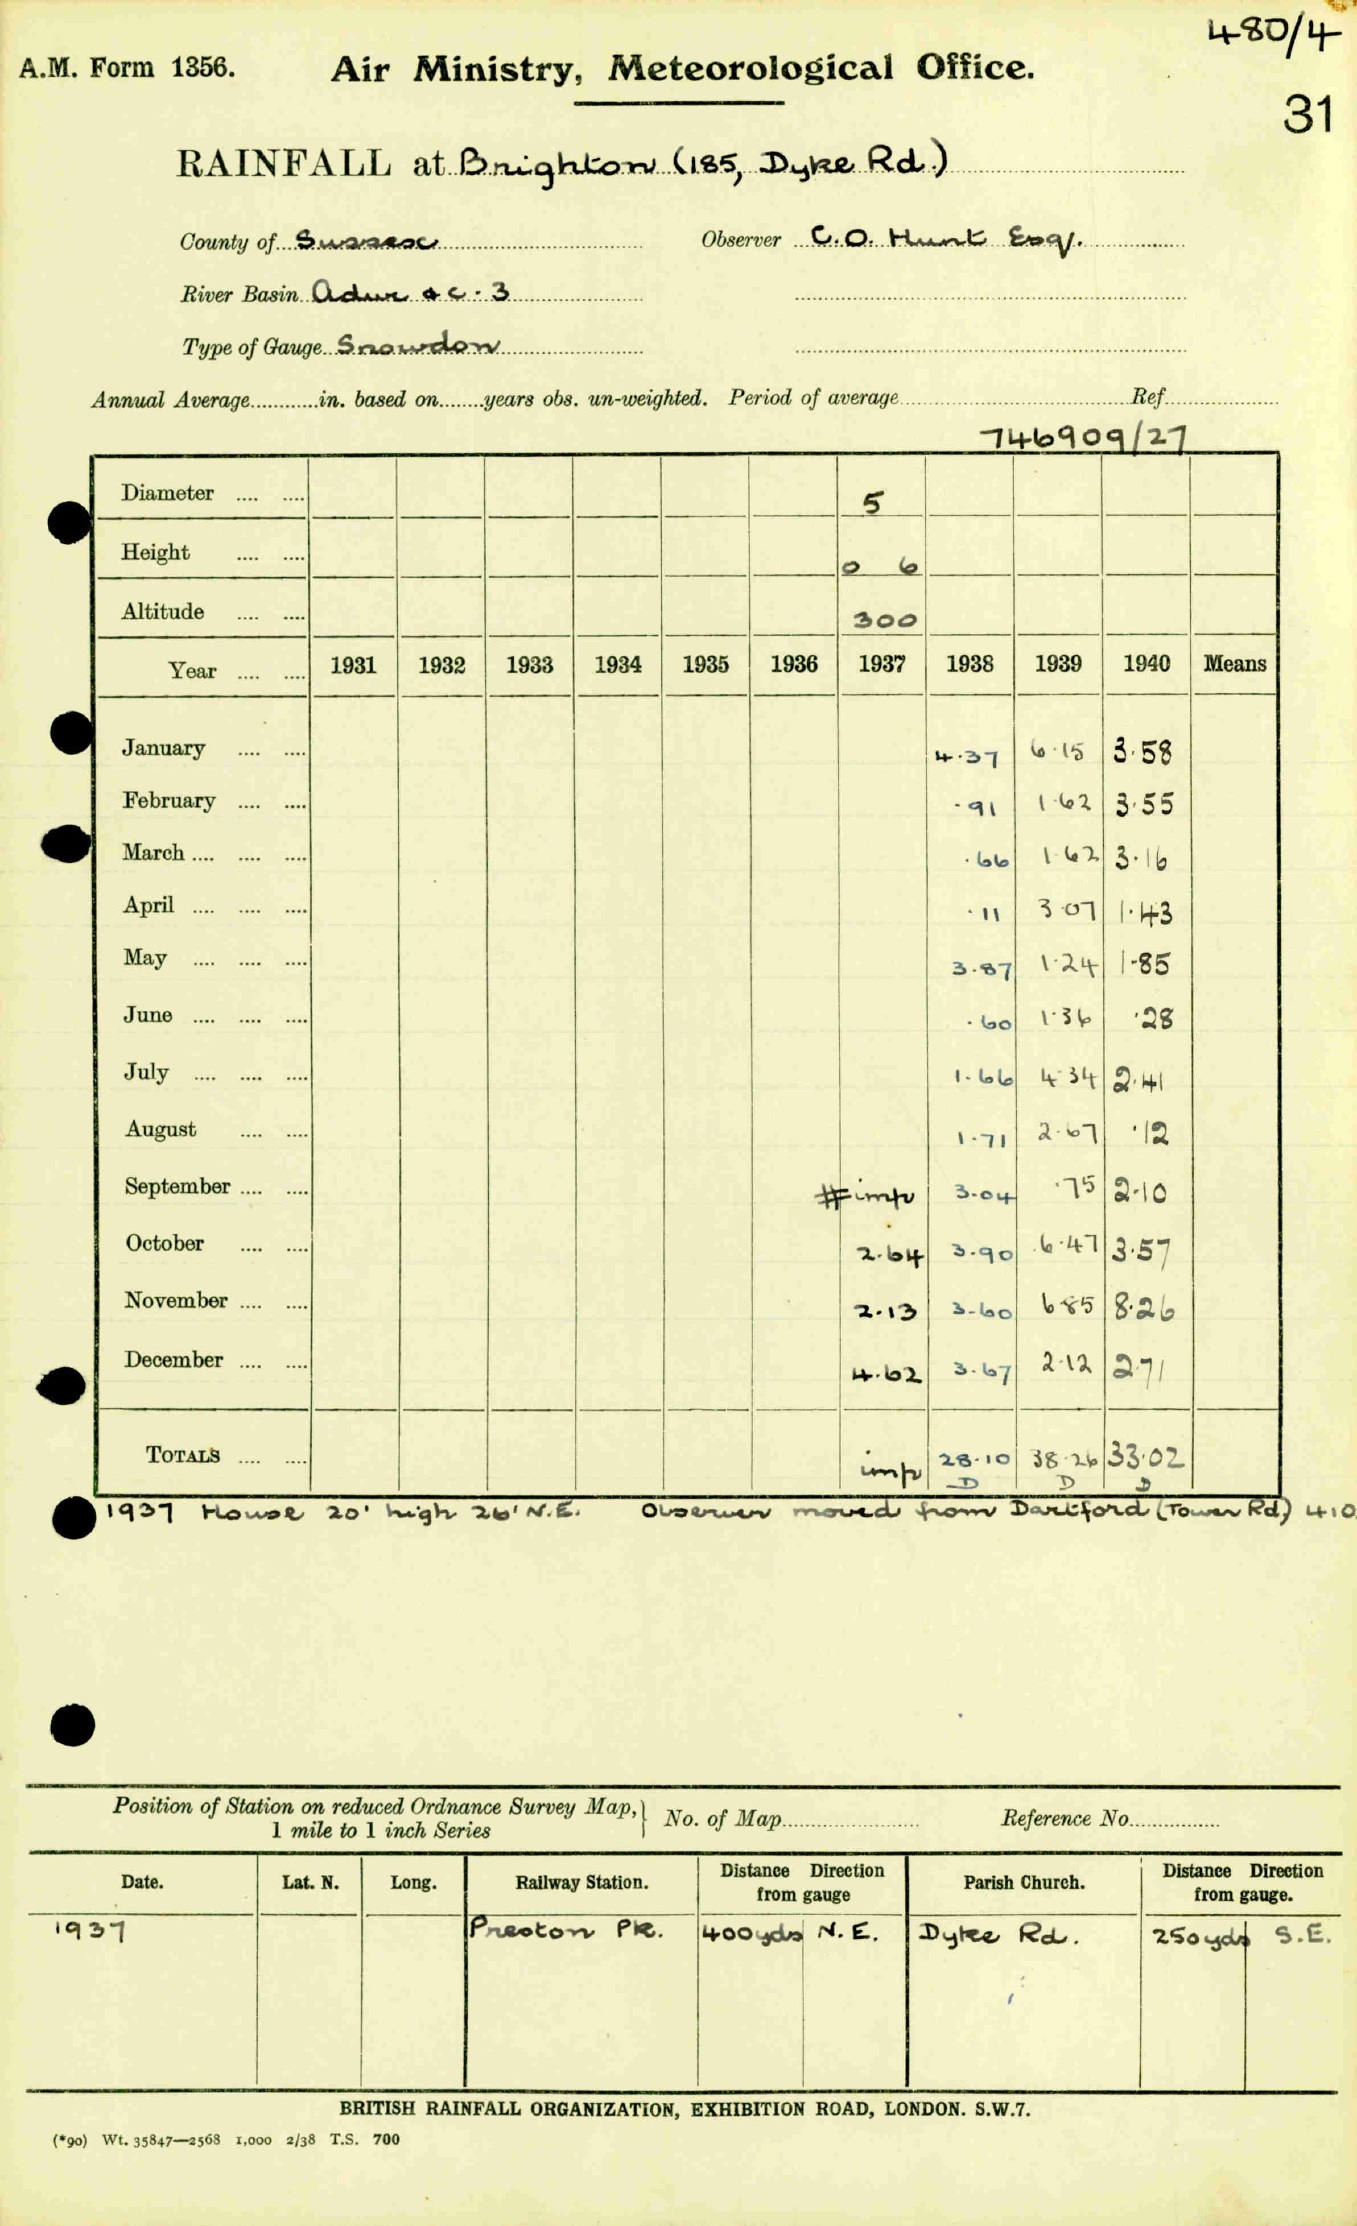 480/4
A.M. Form 1356. Air Ministry, Meteorological Office.
31
RAINFALL at Brighton (185, Dyke Rd.)
County of Sussex Observer C.O. Hunt Esq.
River Basin Adur &c. 3
Type of Gauge Snowdon
Annual Average............in. based on........years obs. un-weighted. Period of average........................Ref....................
746909/27
Diameter .... .... 5
Height .... .... 0 6
Altitude .... .... 300
Year .... .... 1931 1932 1933 1934 1935 1936 1937 1938 1939 1940 Means
January .... .... 4.37 6.15 3.58
February .... .... .91 1.62 3.55
March .... .... .... .66 1.62 3.16
April .... .... .... .11 3.07 1.43
May .... .... .... 3.87 1.24 1.85
June .... .... .... .60 1.36 .28
July .... .... .... 1.66 4.34 2.41
August .... .... 1.71 2.67 .12
September .... .... # imp 3.04 .75 2.10
October .... .... 2.64 3.90 6.47 3.57
November .... .... 2.13 3.60 6.85 8.26
December .... .... 4.62 3.67 2.12 2.71
TOTALS .... .... imp 28.10 38.26 33.02
D D D
1937 House 20' high 26' N.E. Observer moved from Dartford (Tower Rd.) 410
Position of Station on reduced Ordnance Survey Map, } No. of Map........................ Reference No................
1 mile to 1 inch Series
Date. Lat. N. Long. Railway Station. Distance Direction from gauge Parish Church. Distance Direction from gauge.
1937 Preston Pk. 400yds N.E. Dyke Rd. 250yds S.E.
BRITISH RAINFALL ORGANIZATION, EXHIBITION ROAD, LONDON. S.W.7.
(*90) Wt. 35847—2568 1,000 2/38 T.S. 700